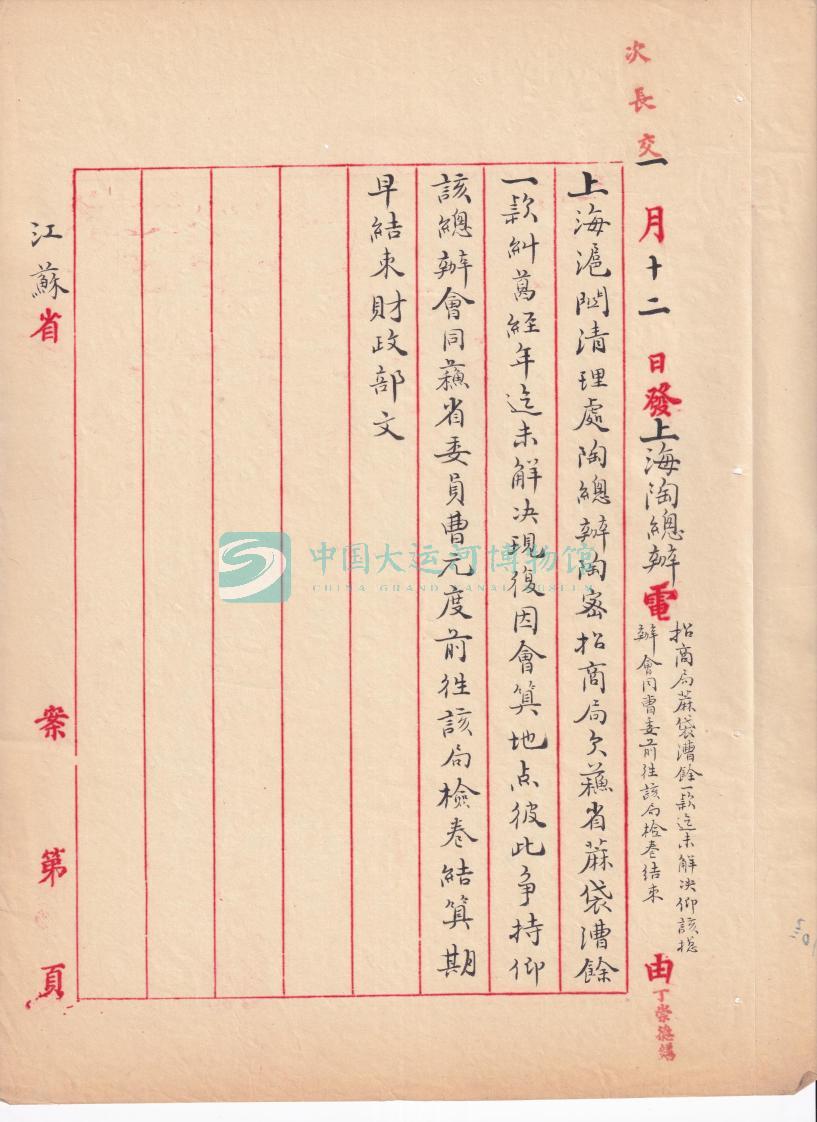 次長交
一月十二日發上海陶總辦電
招商局蔴袋漕餘一款迄未解决仰該總
辦會同曹委前往該局檢卷結束
由
上海滬關清理處陶總辦陶密招商局欠蘓省蔴袋漕餘
一款糾葛経年迄未解决現復因會算地点彼此争持仰
該總辦會同蘓省委員曹元度前往該局檢卷結算期
早結束財政部文
江蘇省
案
第
頁
中国大运河博物馆
CHINA GRAND CANAL MUSEUM